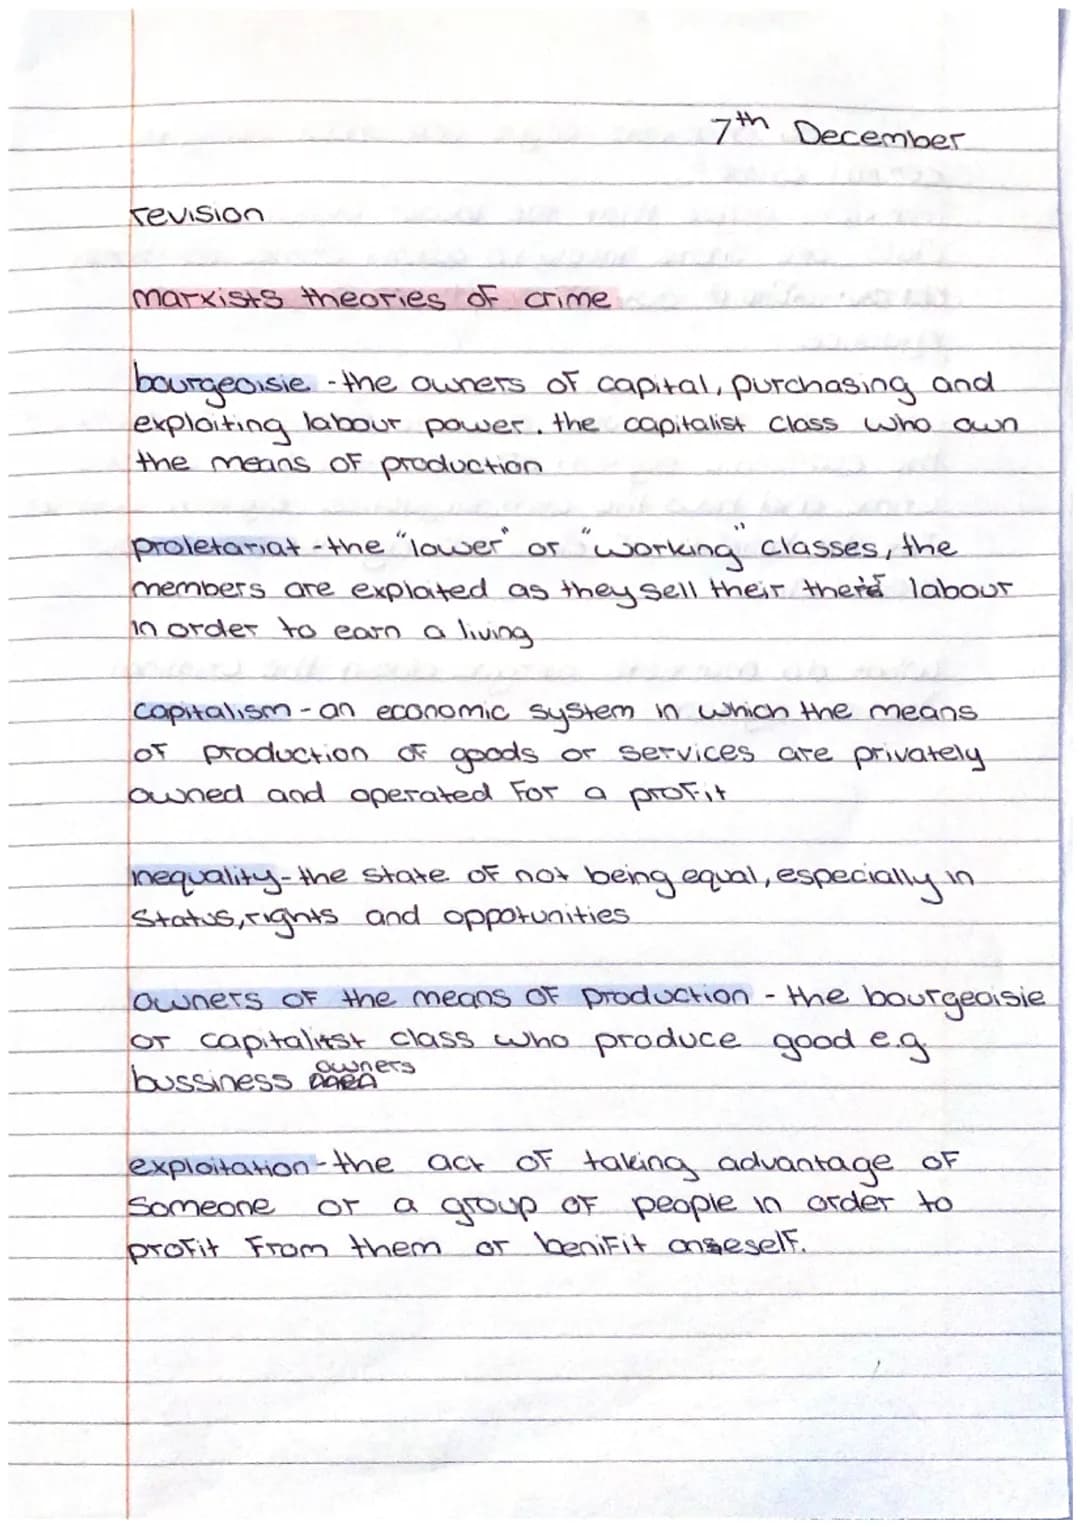 7th December
revision
marxists theories of crime
bourgeoisie - the owners of capital, purchasing and
exploiting labour power. the capitalist class who own
the means of production
proletariat - the "lower" or "working" classes, the
members are exploited as they sell their there labour
in order to earn a living
capitalism - an economic system in which the means
of production of goods or services are privately
owned and operated for a profit
inequality - the state of not being equal, especially in
status, rights and oppotunities
owners of the means of production - the bourgeoisie
or capitalist class who produce good e.g.
owners
bussiness
exploitation - the act of taking advantage of
someone or a group of people in order to
profit from them or benifit oneself.